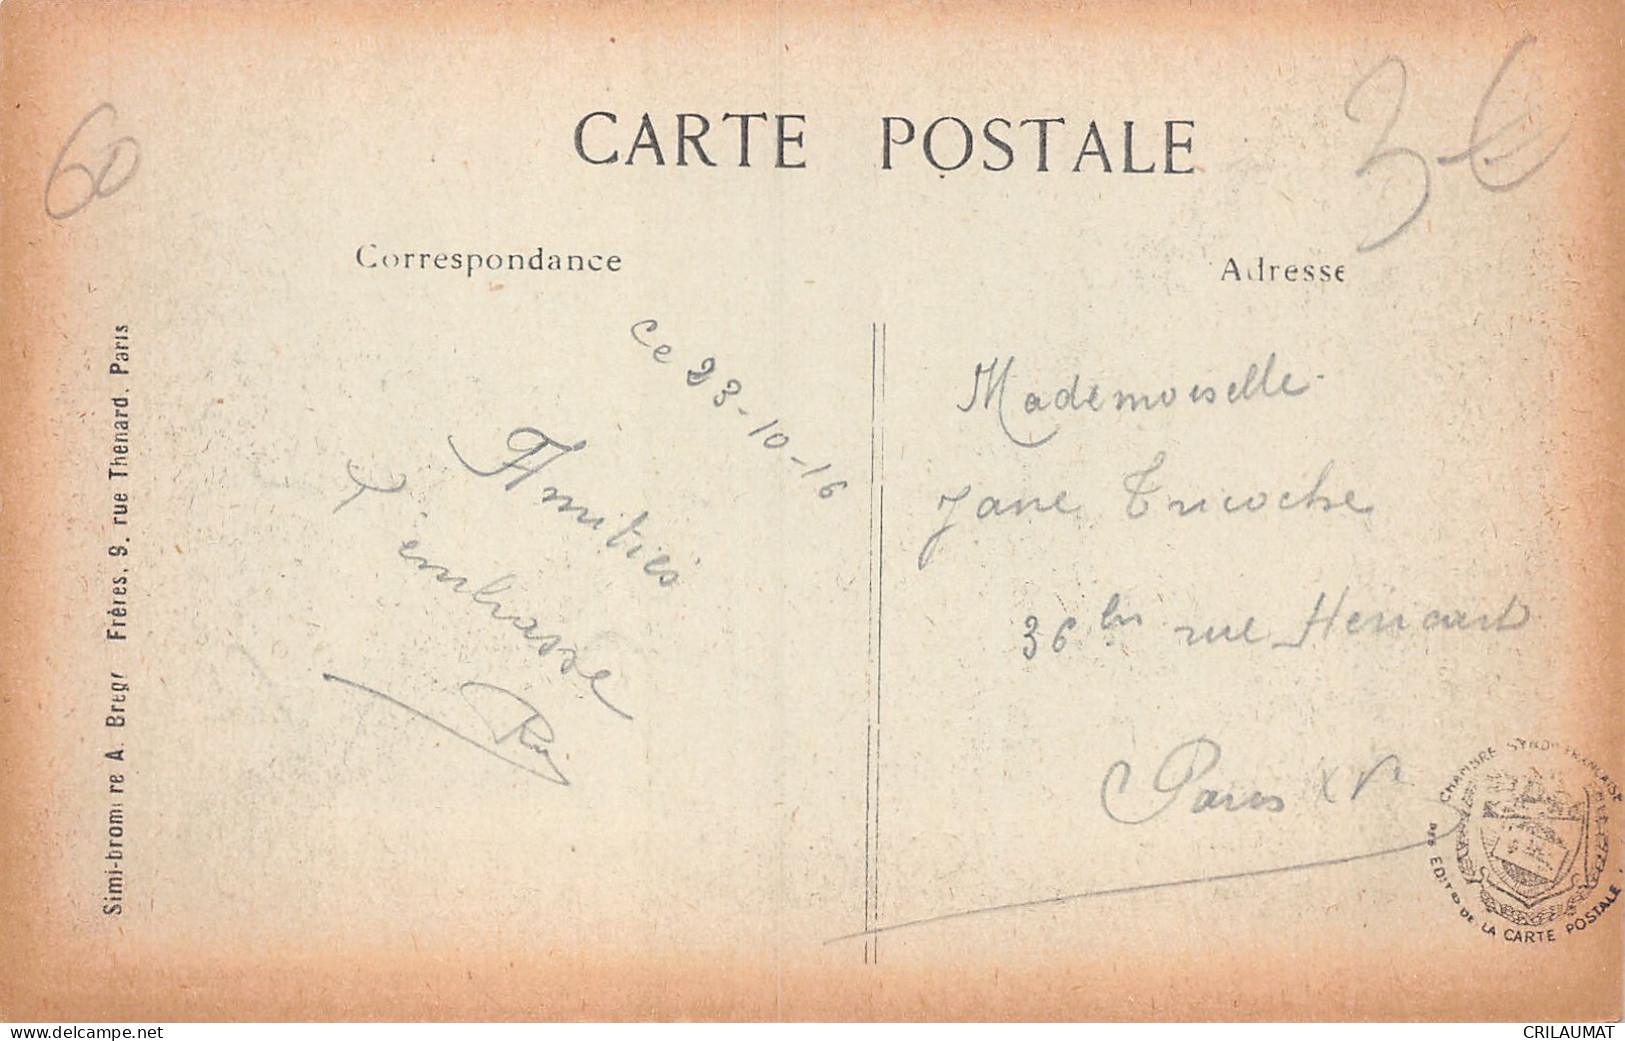 60
3€
CARTE POSTALE
Correspondance
Adresse
Simi-bromure A. Breger Frères, 9. rue Thenard. Paris
Ce 23-10-16
Amitiés
T'embrasse
Mademoiselle
Jane Tricoche
36 bis rue
Paris XVe
CHAMBRE SYND. FRANÇAISE
DES EDITRS DE LA CARTE POSTALE
delcampe.net
CRILAUMAT